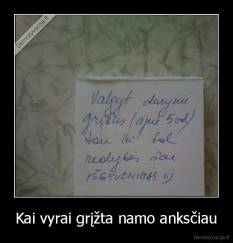 Demotyvacija.lt
Valgyt darysiu
grįžus (apie 5val)
tau iki tol
realybės šou
IŠGYVENIMAS =))
Kai vyrai grįžta namo anksčiau
Demotyvacija.lt